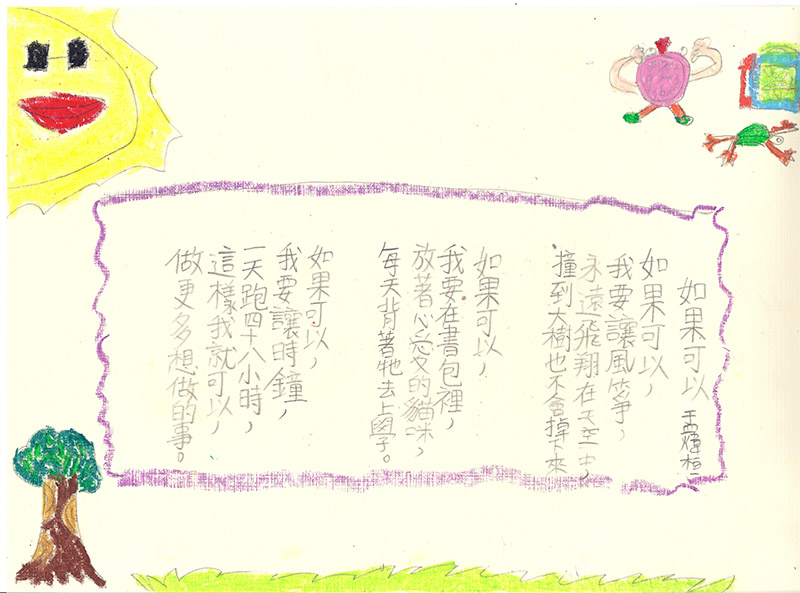 如果可以
如果可以,
我要讓風箏,
永遠飛翔在天空中,
撞到大樹也不會掉下來
如果可以,
我要在書包裡,
放著心愛的貓咪,
每天背著牠去上學。
如果可以,
我要讓時鐘,
一天跑四十八小時,
這樣我就可以,
做更多想做的事。